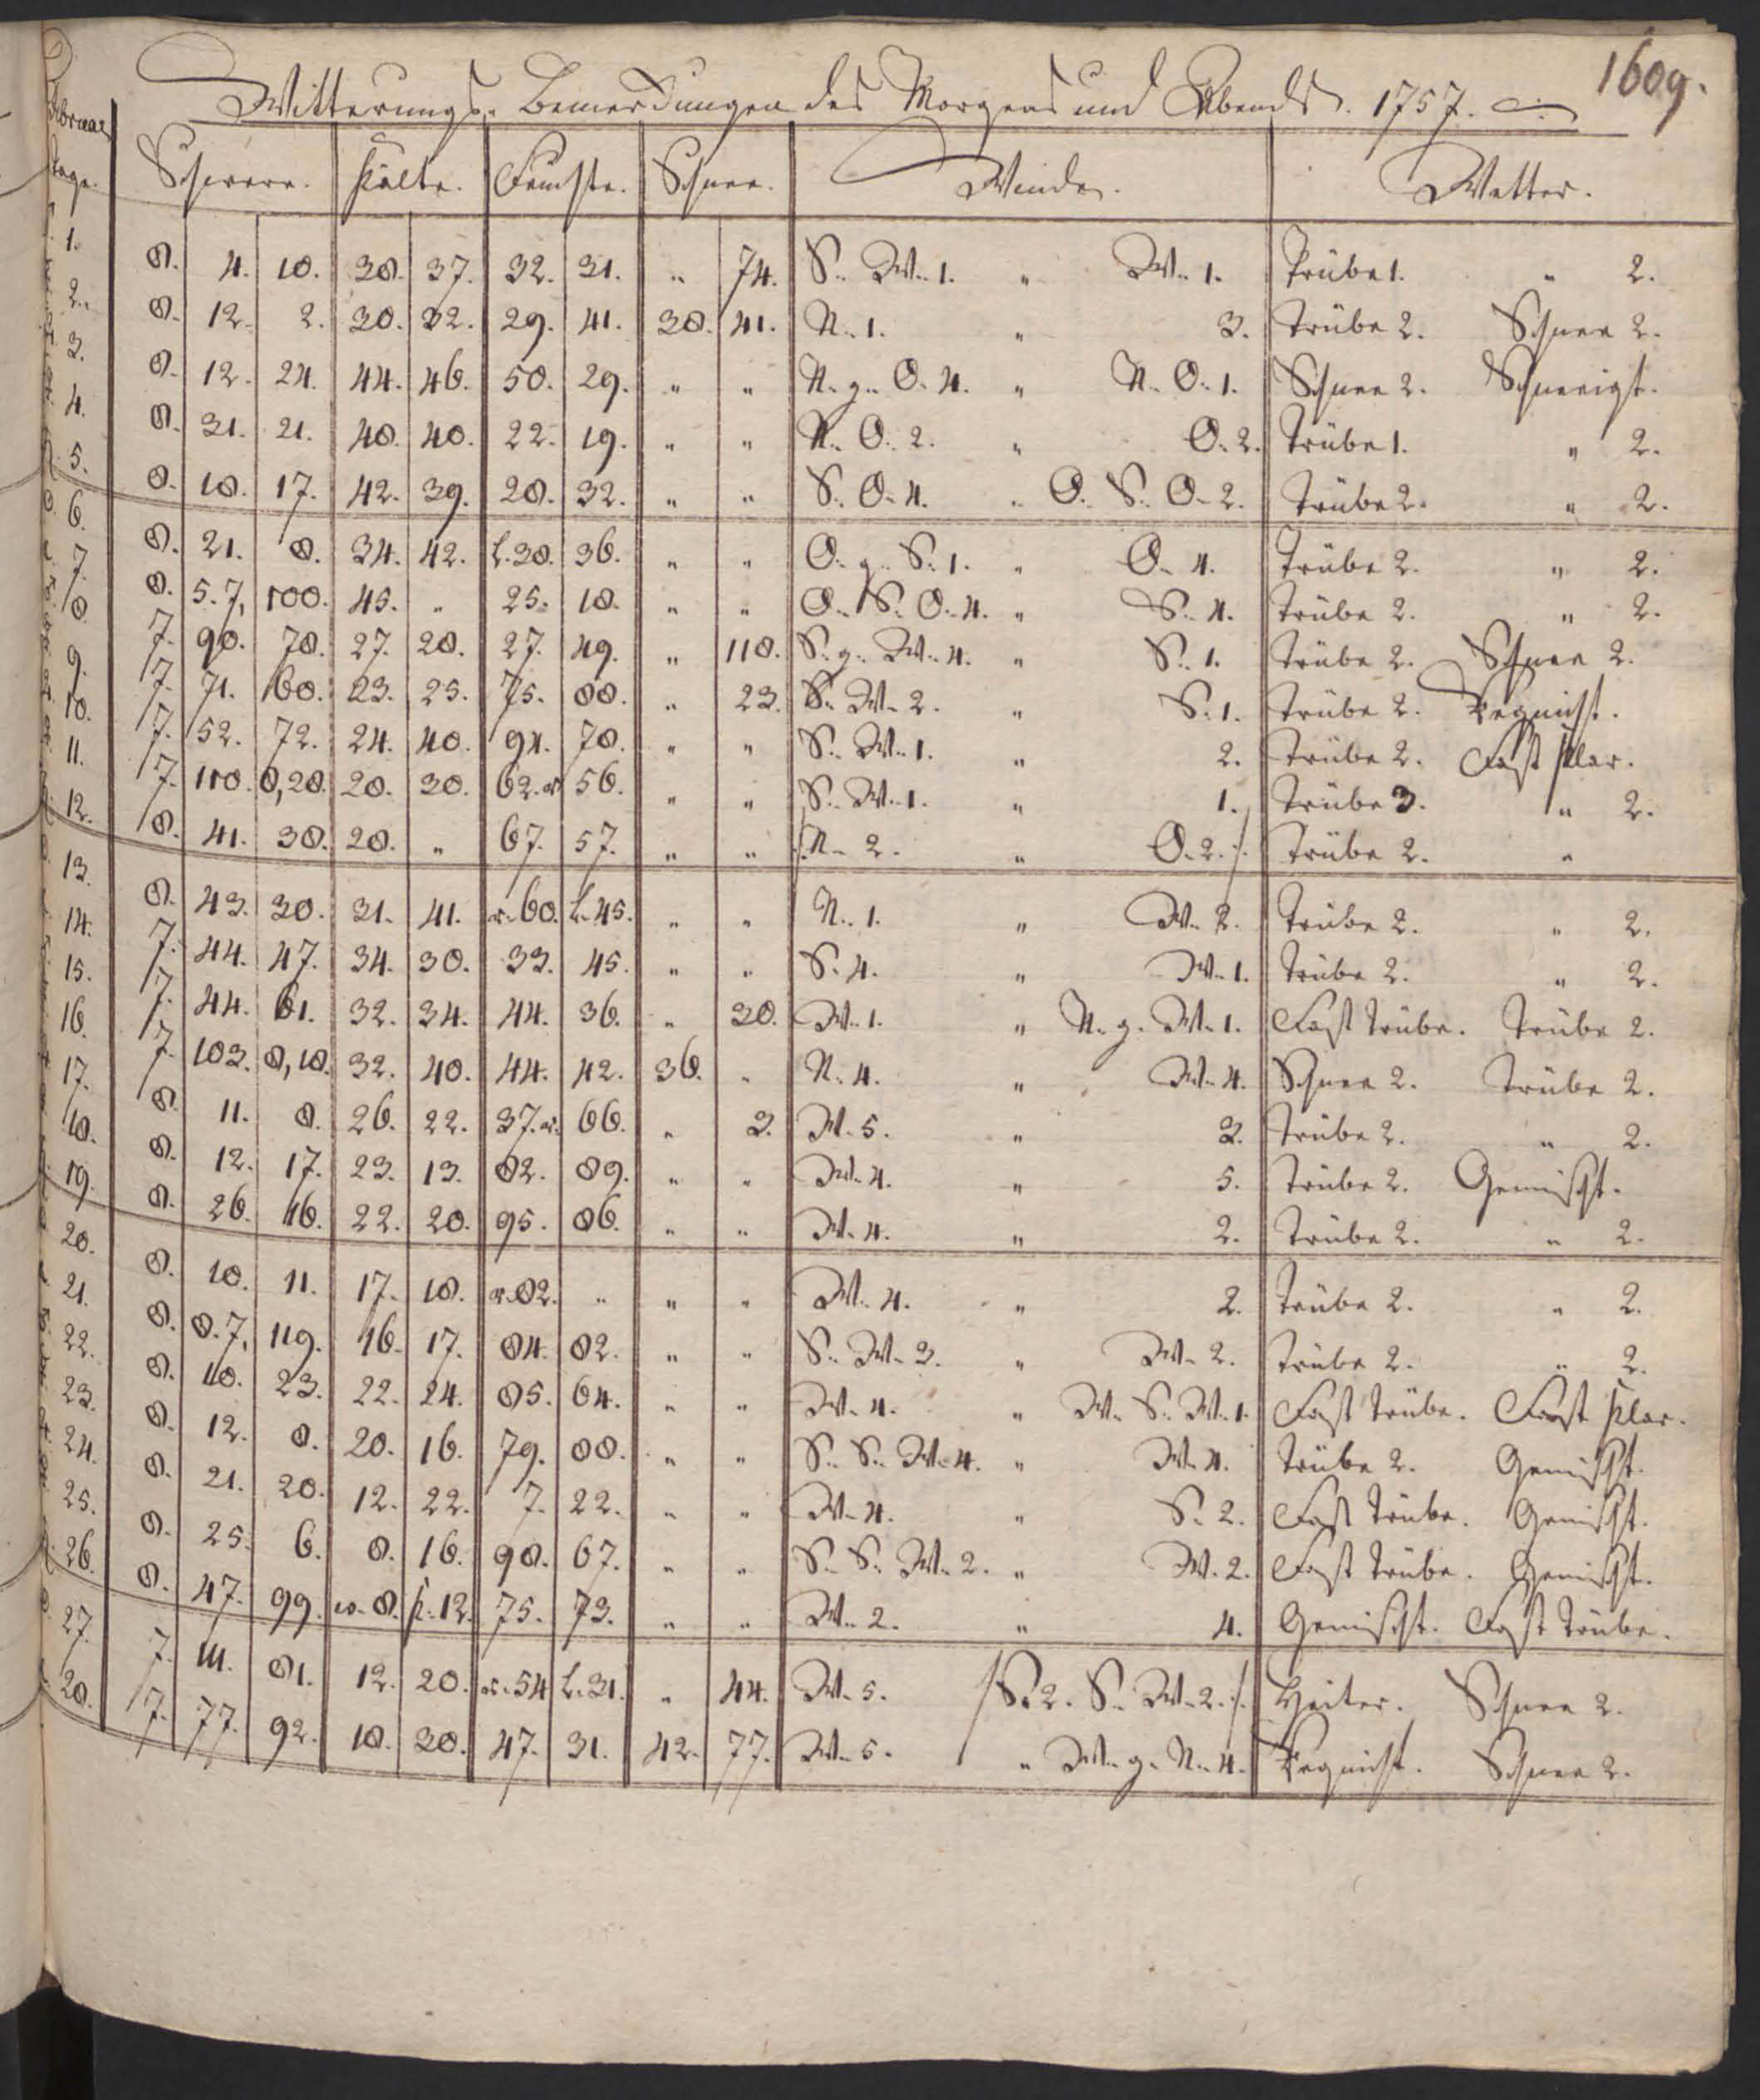 1609.
Witterungs-Bemerckungen des Morgens und Abends. 1757.
Februar Tage. Schwere. Kälte. Feuchte. Schnee. Winde. Wetter.
1. 8. 4. 18. 38. 37. 32. 31. " 74. S. W. 1. " W. 1. Trübe 1. " 2.
2. 8. 12. 2. 30. 32. 29. 41. 38. 41. N. 1. " 3. Trübe 2. Schnee 2.
3. 8. 12. 24. 44. 46. 50. 29. " " N. g. O. 4. " N. O. 1. Schnee 2. Schneeigt.
4. 8. 31. 21. 48. 40. 22. 19. " " N. O. 2. " O. 2. Trübe 1. " 2.
5. 8. 18. 17. 42. 39. 28. 32. " " S. O. 4. " O. S. O. 2. Trübe 2. " 2.
6. 8. 21. 8. 34. 42. l. 38. 36. " " O. g. S. 1. " O. 4. Trübe 2. " 2.
7. 8. 5. 7, 100. 45. " 25. 18. " " O. S. O. 4. " S. 4. Trübe 2. " 2.
8. 7. 90. 78. 27. 28. 27. 49. " 118. S. g. W. 4. " S. 1. Trübe 2. Schnee 2.
9. 7. 71. 60. 23. 25. 75. 88. " 23. S. W. 2. " S. 1. Trübe 2.
10. 7. 52. 72. 24. 40. 94. 78. " " S. W. 1. " 2. Trübe 2. Fast klar.
11. 7. 110. 8, 28. 28. 30. 62. r 56. " " S. W. 1. " 1. Trübe 3. " 2.
12. 8. 41. 38. 28. " 67. 57. " " /. N. 2. " O. 2. /. Trübe 2. "
13. 8. 43. 30. 31. 41. r. 60. l. 45. " " N. 1. " W. 2. Trübe 2. " 2.
14. 7. 44. 47. 34. 30. 33. 45. " " S. 4. " W. 1. Trübe 2. " 2.
15. 7. 44. 61. 32. 34. 44. 36. " 30. W. 1. " N. g. W. 1. Fast Trübe. Trübe 2.
16. 7. 103. 8, 18. 32. 40. 44. 42. 36. " N. 4. " W. 4. Schnee 2. Trübe 2.
17. 8. 11. 8. 26. 22. 37. r. 66. " 3. W. 5. " 3. Trübe 2. " 2.
18. 8. 12. 17. 23. 13. 82. 89. " " W. 4. " 5. Trübe 2. Gemischt.
19. 8. 26. 16. 22. 20. 95. 86. " " W. 4. " 2. Trübe 2. " 2.
20. 8. 10. 11. 17. 18. r. 82. " " " W. 4. " 2. Trübe 2. " 2.
21. 8. 8. 7, 119. 16. 17. 84. 82. " " S. W. 3. " W. 2. Trübe 2. " 2.
22. 8. 10. 23. 22. 24. 85. 64. " " W. 4. " W. S. W. 1. Fast Trübe. Fast klar.
23. 8. 12. 8. 20. 16. 79. 88. " " S. S. W. 4. " W. 4. Trübe 2. Gemischt.
24. 8. 21. 20. 12. 22. 7. 22. " " W. 4. " S. 2. Fast Trübe. Gemischt.
25. 8. 25. 6. 8. 16. 98. 67. " " S. S. W. 2. " W. 2. Fast Trübe. Gemischt.
26. 8. 47. 99. w. 8. k. 12. 75. 73. " " W. 2. " 4. Gemischt. Fast Trübe.
27. 7. 111. 81. 12. 20. r. 54 l. 31. " 44. W. 5. /S. 2. S. W. 2. /. Heiter. Schnee 2.
28. 7. 77. 92. 18. 30. 47. 31. 42. 77. W. 5. " W. g. N. 4. Schnee 2.